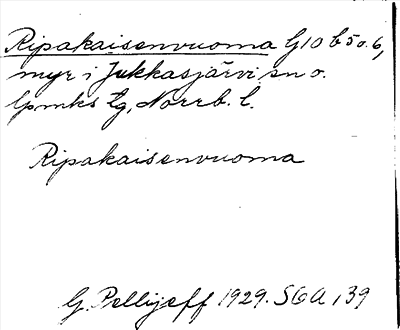 Ripakaisenvuoma G10 b 5 o. 6,
myr i Jukkasjärvi sn o.
lpmks tg, Norrb. l.
Ripakaisenvuoma
G. Pellijeff 1929. SOA, 39